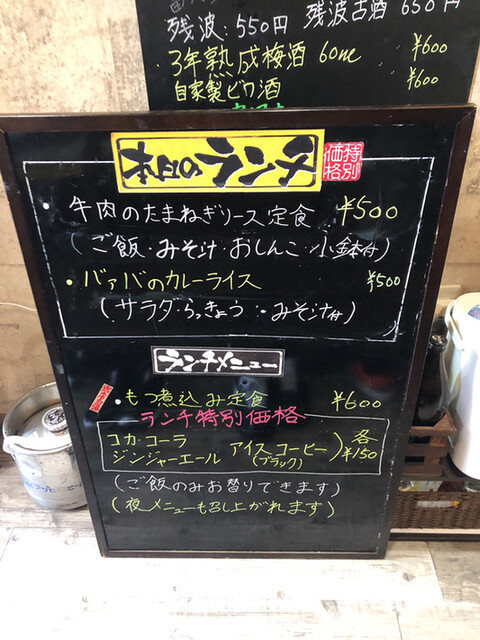 残波:550円 残波古酒 650円
3年熟成梅酒 60ml ¥600
自家製ビワ酒 ¥600
本日のランチ
特別価格
・牛肉のたまねぎソース定食 ¥500
(ご飯・みそ汁・おしんこ・小鉢付)
・バァバのカレーライス ¥500
(サラダ・らっきょう・みそ汁付)
ランチメニュー
・もつ煮込み定食 ¥600
ランチ特別価格
コカ・コーラ
ジンジャーエール
アイスコーヒー
(ブラック)
各¥150
(ご飯のみお替りできます)
(夜メニューも召し上がれます)